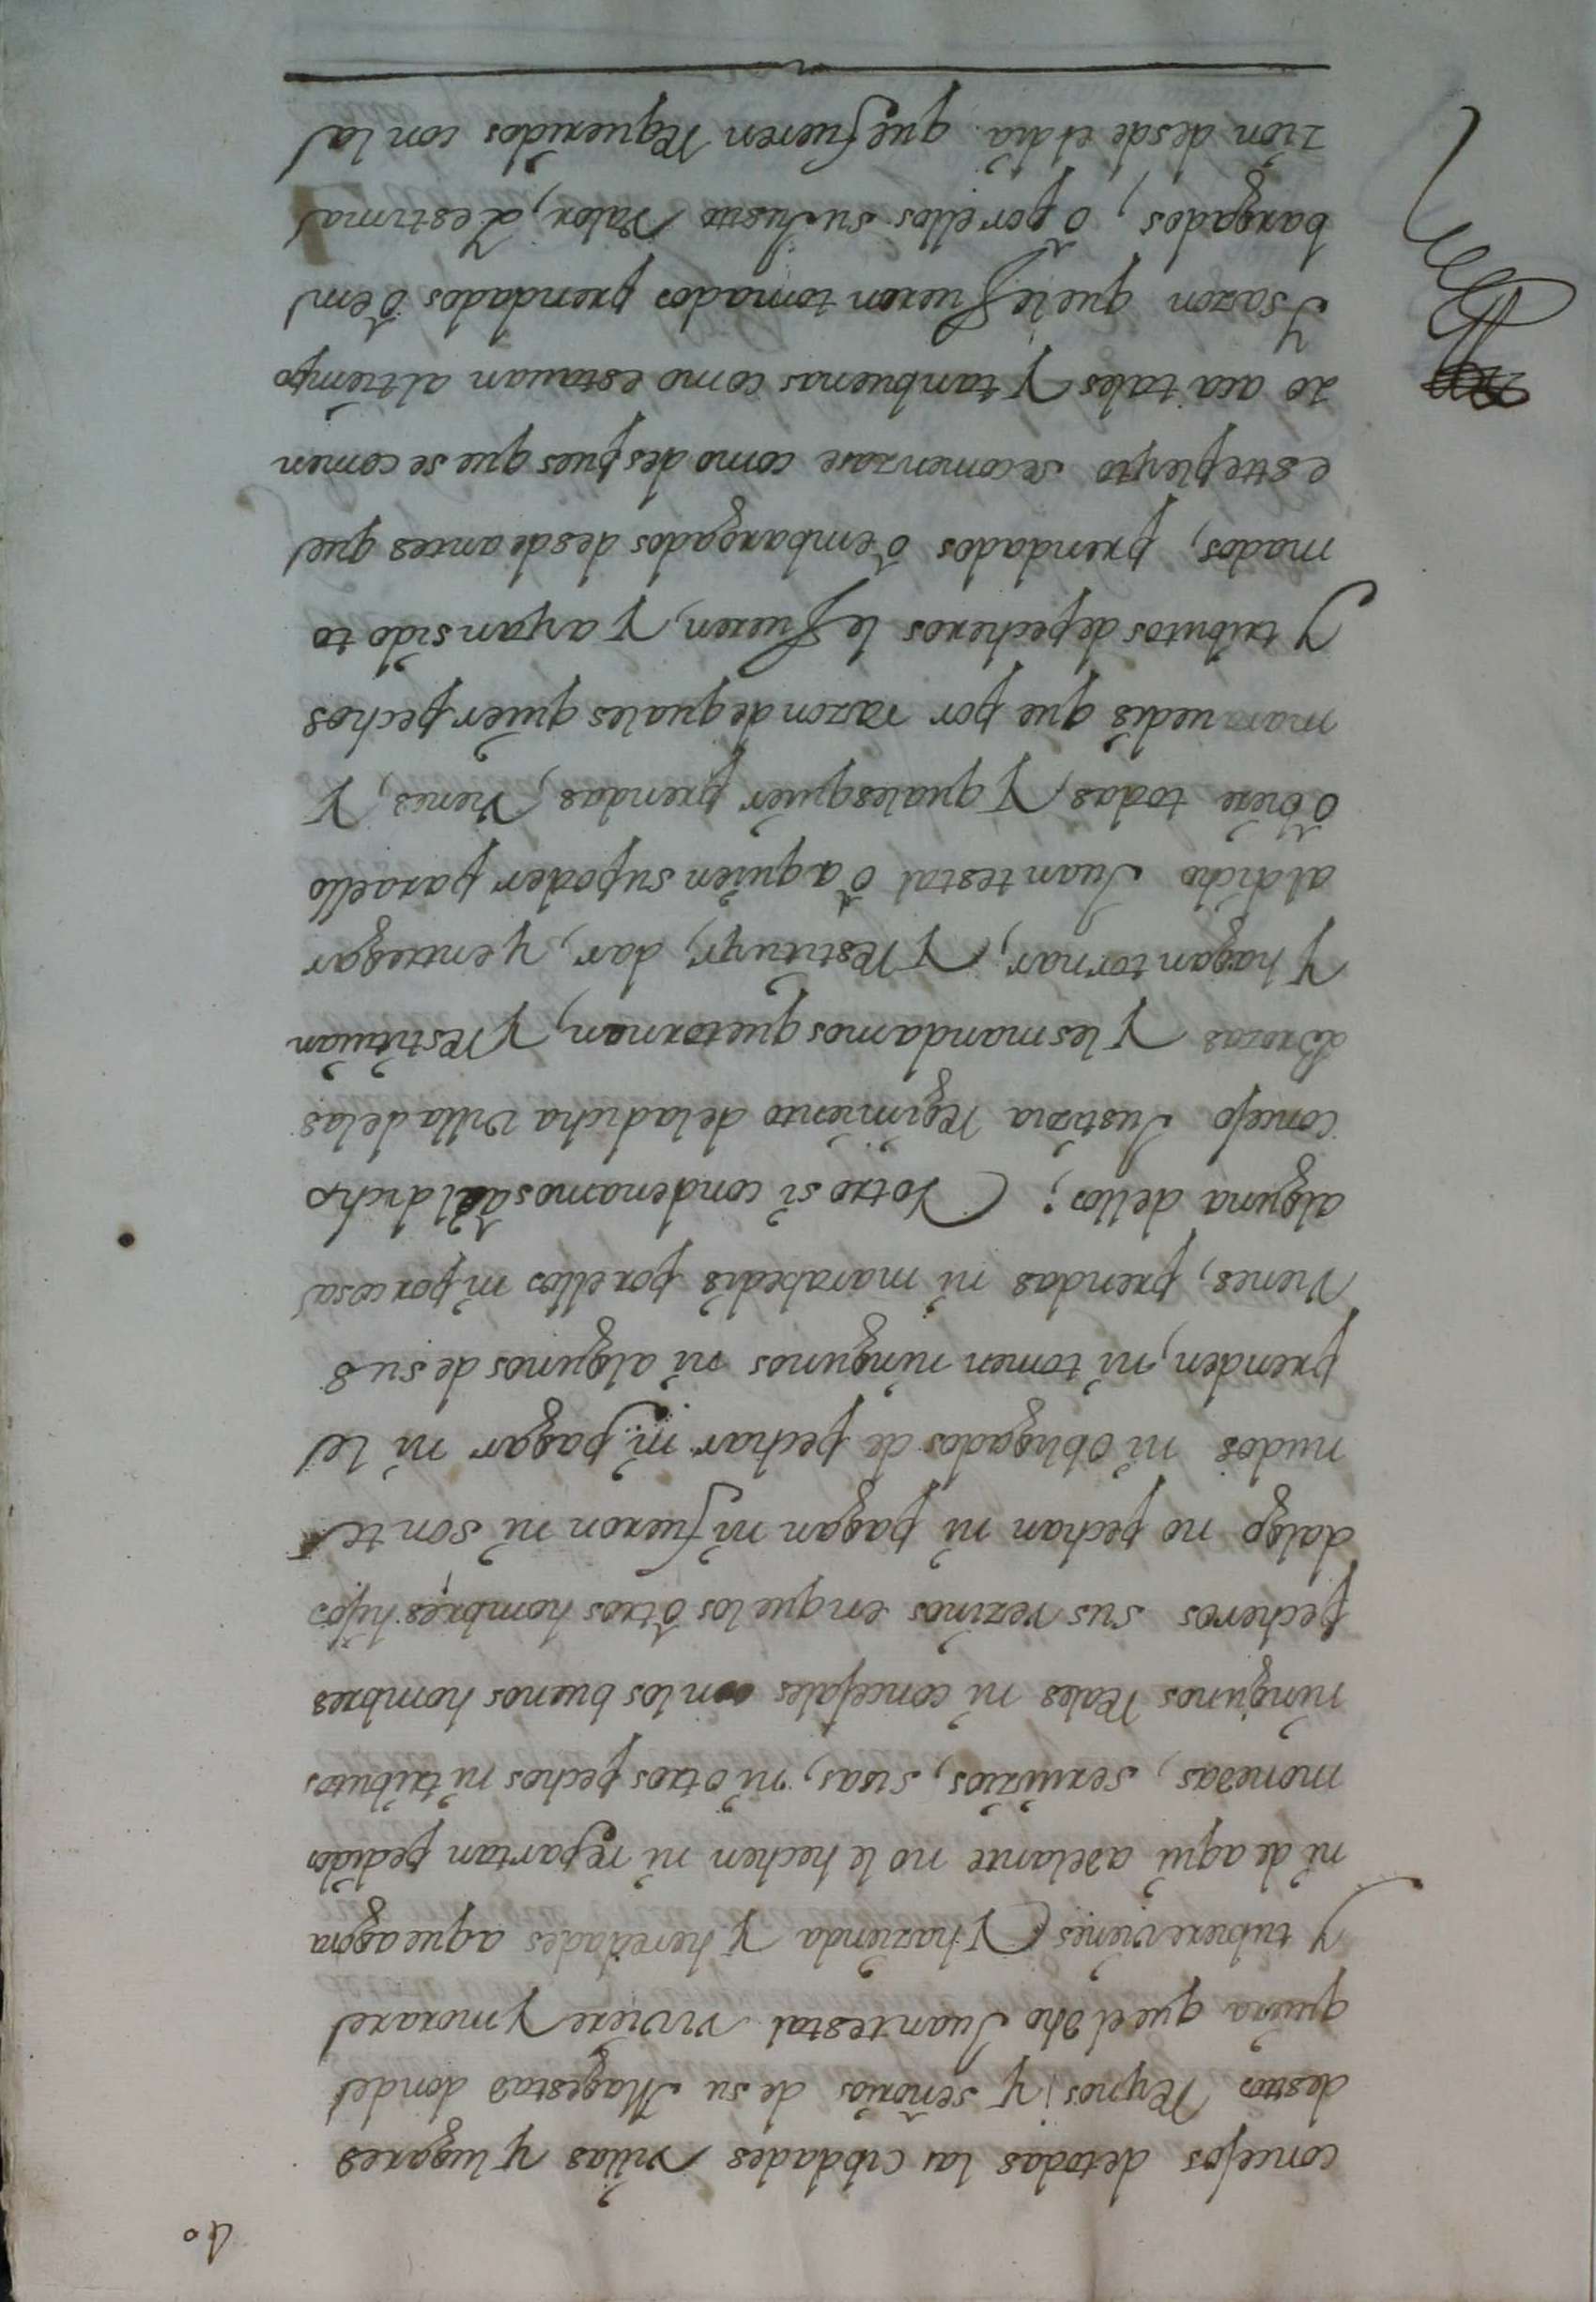 40
concejos de todas las cibdades villas y lugares
destos Reynos y señorios de su Magestad donde
quiera que el dho Juan testal viviere y morare
y tubiere vienes y hazienda y heredades a que agora
ni de aqui adelante no le hechen ni repartan pedidos
monedas, seruizios, sisas, ni otros pechos ni tributos
ningunos Reales ni concejales con los buenos hombres
pecheros sus vezinos en que los otros hombres hijos
dalgo no pechan ni pagan ni fueron ni son te
nudos ni obligados de pechar ni pagar ni le
prenden, ni tomen ningunos ni algunos de sus
vienes, prendas ni marabedis por ellos ni por cosa
alguna dellos; Y otro si condenamos al dicho
concejo Justizia Regimiento de la dicha villa de las
Brozas y les mandamos que tornen, y Restituian
y hagan tornar, y Restituyr, dar, y entregar
al dicho Juan testal ò a quien su poder para ello
òbiere todas, y qualesquier prendas, vienes, y
marauedis que por razon de quales quier pechos
y tributos de pecheros le fueren, y ayan sido to
mados, prendados ò embargados desde antes que
este pleyto se comenzase como despues que se comen
zo aca tales y tan buenas como estauan al tiempo
y sazon que le fueron tomados prendados ò em
bargados, ò por ellos su Justo valor, y estima
zion desde el dia que fueren Requeridos con la